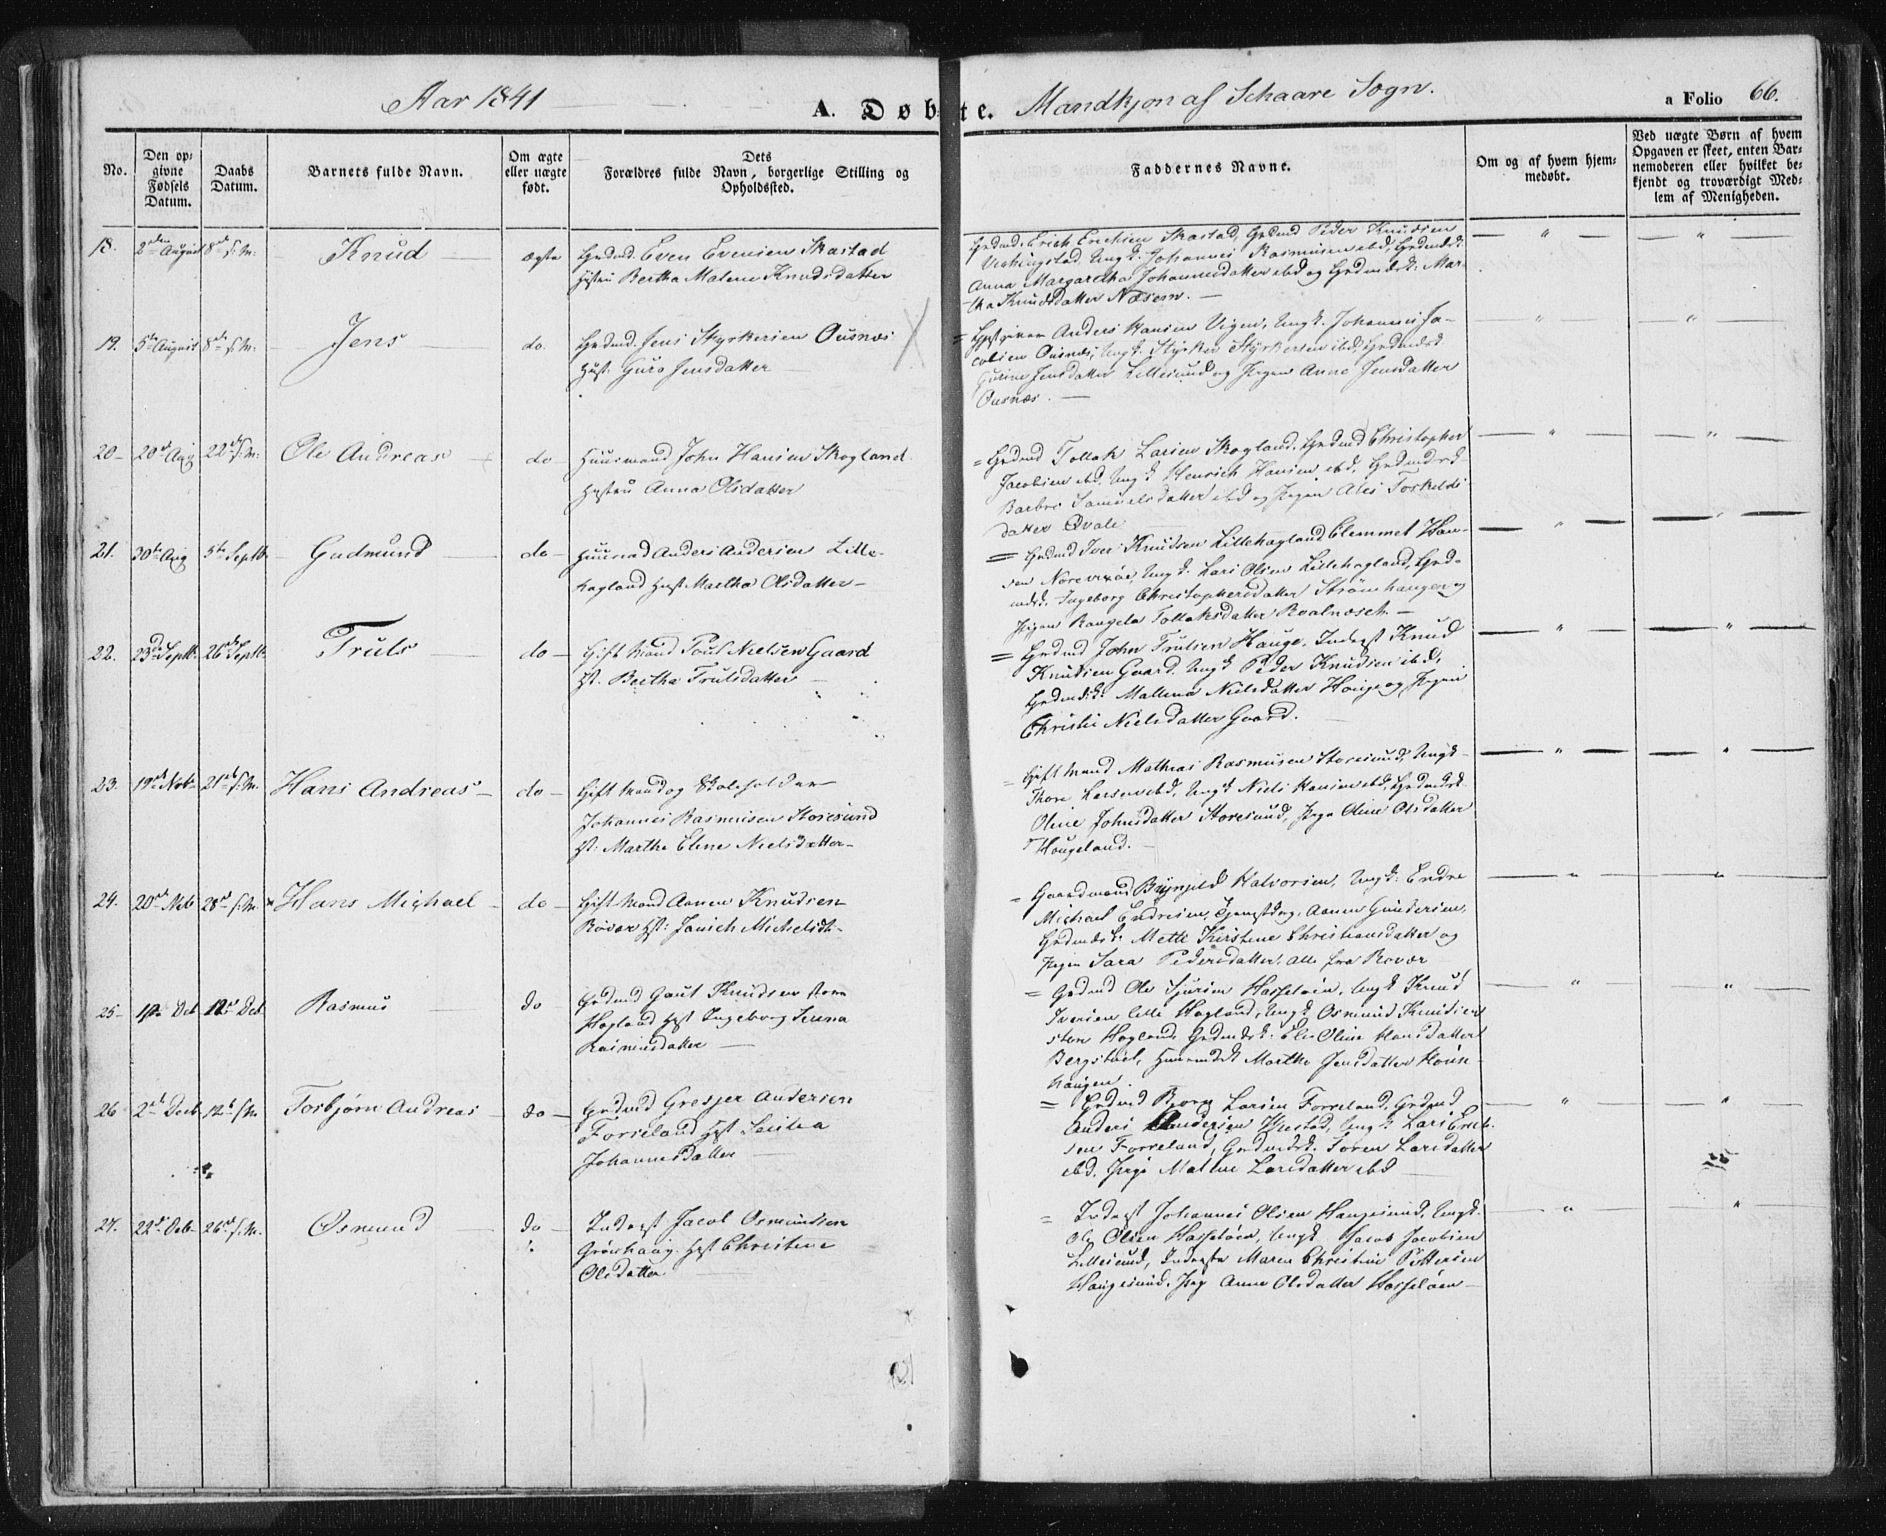 Aar 1841
A. Døbte.
Mandkjøn af Schaare Sogn.
a Folio 66.
No.
Den op-
givne
Fødsels
Datum.
Daabs
Datum.
Barnets fulde Navn.
Om ægte
eller uægte
født.
Dets
Forældres fulde Navn, borgerlige Stilling og
Opholdssted.
Faddernes Navne.
Om og af hvem hjem-
medøbt.
Ved uægte Børn af hvem
Opgaven er skeet, enten Bar-
nemoderen eller hvilket be-
kjendt og troværdigt Med-
lem af Menigheden.
18. 2den August 8de s. M. Knud ægte
Grdmd. Even Evensen Skastad
Hustru Bertha Malene Knudsdatter
Grdmd. Erich Erichsen Skastad, Grdmd Peder Knudsen
Ungk. Johannes Rasmusen ibd, Grdmdsk.
Anna Margaretha Johannesdatter ibd og Grdmdsk. Mar-
tha Knudsdatter Næsem.
19. 5te August 8de s. M. Jens do.
Grdmd. Jens Styrkersen Qusnæs
Hust. Guro Jensdatter
Gjestgiver Anders Hansen Vigen, Ungk. Johannes Ja-
cobsen Qusnæs, Ungk. Styrker Styrkersen ibd, Grdmdsk
Gurine Jensdatter Lillesund og Pigen Anne Jensdatter
Qusnæs.
20 20de Aug 22de s. M. Ole Andreas do
Huusmand John Hansen Skogland
Hustru Anna Olsdatter
Grdmd Tollak Larsen Skogland, Grdmd Christopher
Jacobsen ibd, Ungk Henrich Hansen ibd, Grdmdsk
Barbro Samuelsdatter ibd og Pigen Ales Torkelds
datter Qvale
21. 30te Aug 5te Septb Gudmund do
Huusmd Anders Andersen Lille-
hagland Hust Martha Olsdatter
Grdmd Iver Knudsen Lillehagland Clemmet Han-
sen Ungk. Lars Olsen Lillehagland, Grd-
mdsk. Ingeborg Christophersdatter Strømhaugen og
Pigen Rangela Tollaksdatter Roalnæset.
22. 23de Septb. 26de Septb. Truls do
Gift Mand Poul Nielsen Gaard
H. Bertha Trulsdatter
Grdmd John Trulsen Hauge, Inderst Knud
Knudsen Gaard, Ungk Peder Knudsen ibd,
Grdmdsk. Mallena Nielsdatter Hauge og Pigen
Christi Nielsdatter Gaard.
23. 19de Nvb 21de s. M. Hans Andreas do
Gift Mand og
Johannes Rasmusen Storesund
H: Marthe Elene Nielsdatter
Gift Mand Mathias Rasmusen Storesund, Ungk
Thore Larsen ibd, Ungk Niels Hansen ibd, Grdmdsk
Oline Johnsdatter Storesund, Pige Oline Olsdatter
Hougeland.
24. 20de Nvb 28de s. M. Hans Michael do
Gift Mand Aanen Knudsen
Røvær H: Janich Michelsdtr
Gaardmand Brynjeld Halvorsen, Ungk: Endre
Michael Endresen, Aanen Gundersen,
Grdmdsk. Mette Kirstine Christiansdatter og
Pigen Sara Pedersdatter, alle fra Røvær
25 1ste Deb 12te Deb Rasmus do
Grdmd Gaut Knudsen store
Hagland Hust Ingeborg Serena
Rasmusdatter
Grdmd Ole Sjursen Hasseløen, Ungk Knud
Iversen lille Hagland, Ungk Osmund Knudsen
store Hagland, Grdmdsk. Else Oline Hansdatter
Martha Jensdatter
haugen.
26 2de Decb 12te s. M. Torbjørn Andreas do
Grdmd Gresjer Andersen
Forreland Hust Seselia
Johannesdatter
Grdmd Børn Larsen Forreland, Grdmd
Anders Andersen Ungk Lars Erik-
sen Forreland, Grdmdsk. Soren Larsdatter
ibd. Pige Malene Larsdatter ibd
27. 22de Deb 26de s. M. Osmund do
Inderst Jacob Osmundsen
Grønhaug. Hust Christene
Olsdatter
Inderst Johannes Olsen Haugesund, Ungk.
Ole Olsen Hasseløen, Ungk Jacob Jacobsen
Lillesund, Inderste Maren Christine Pettersen
Haugesund, Pige Anne Olsdatter Hasseløen